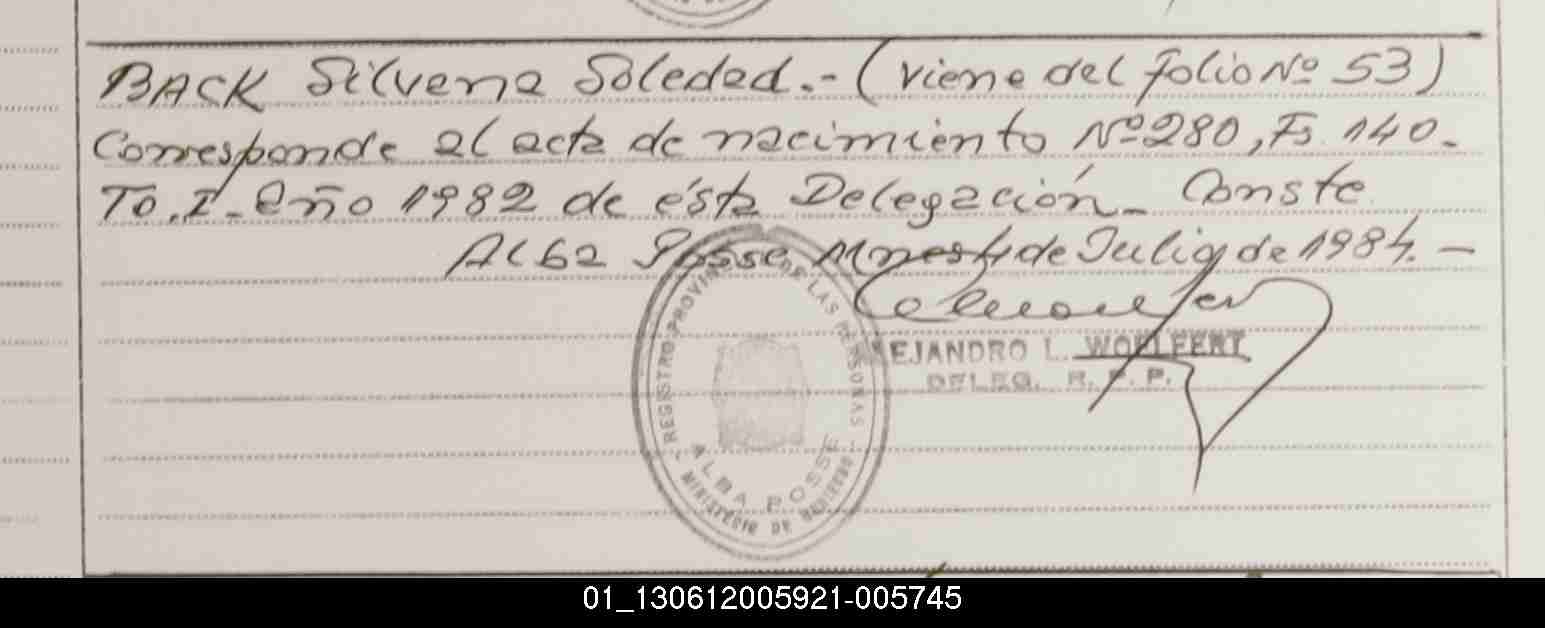 BACK Silvana Soledad.- (viene del folio Nº 53)
Corresponde al acta de nacimiento Nº 280, Fs. 140.-
To. I - año 1982 de ésta Delegación - Conste
Alba Posse Mnes 4 de Julio de 1984. -
EJANDRO L. WOELFERT
DELEG. R. P. P.
- REGISTRO PROVINCIAL DE LAS PERSONAS -
ALBA POSSE
MINISTERIO DE GOBIERNO
01_130612005921-005745